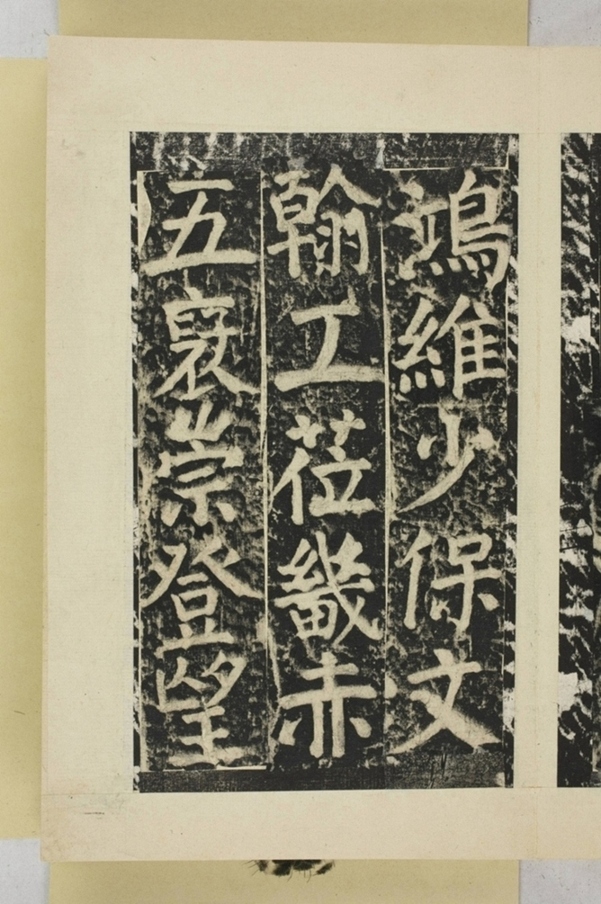 鴻維少保文
翰工莅畿赤
五衮崇登望